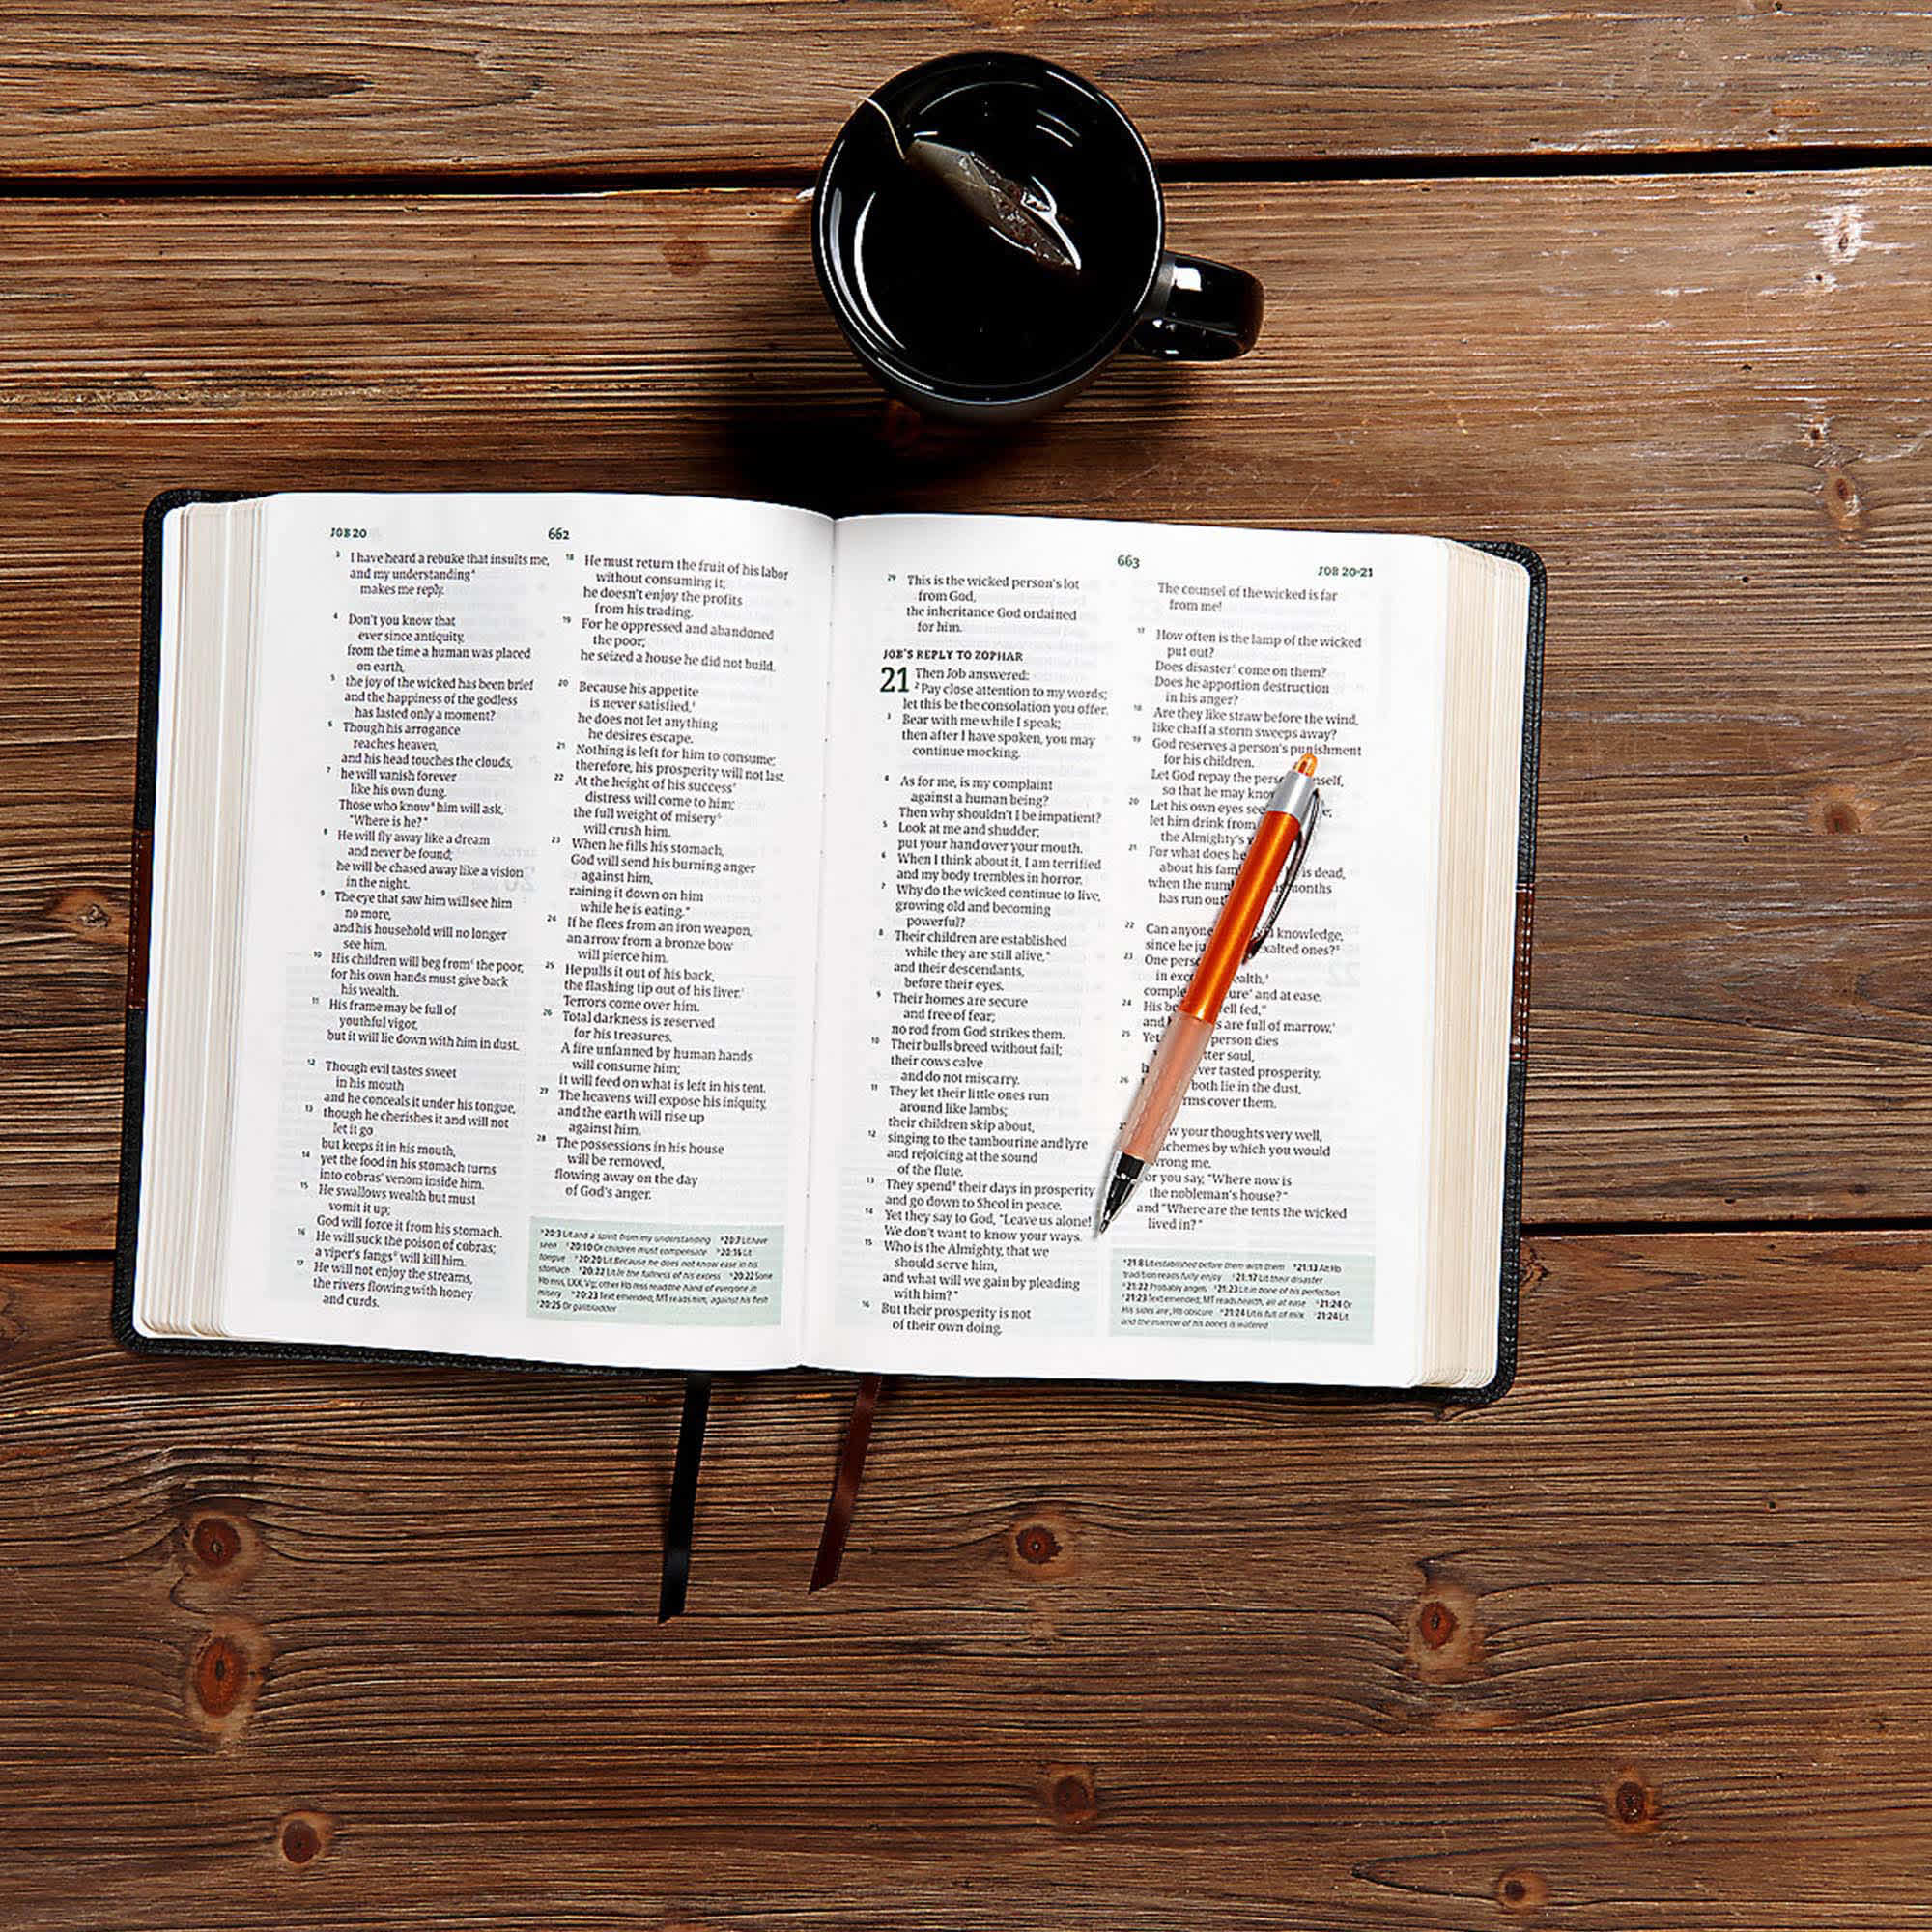 JOB 20
662
3 I have heard a rebuke that insults me,
and my understanding
makes me reply.
4 Don't you know that
ever since antiquity,
from the time a human was placed
on earth,
5 the joy of the wicked has been brief
and the happiness of the godless
has lasted only a moment?
6 Though his arrogance
reaches heaven,
and his head touches the clouds,
7 he will vanish forever
like his own dung.
Those who know him will ask,
"Where is he?"
8 He will fly away like a dream
and never be found;
he will be chased away like a vision
in the night.
9 The eye that saw him will see him
no more,
and his household will no longer
see him.
10 His children will beg from the poor,
for his own hands must give back
his wealth.
11 His frame may be full of
youthful vigor,
but it will lie down with him in dust.
12 Though evil tastes sweet
in his mouth
and he conceals it under his tongue,
13 though he cherishes it and will not
let it go
but keeps it in his mouth,
14 yet the food in his stomach turns
into cobras' venom inside him.
15 He swallows wealth but must
vomit it up;
God will force it from his stomach.
16 He will suck the poison of cobras;
a viper's fangs will kill him.
17 He will not enjoy the streams,
the rivers flowing with honey
and curds.
18 He must return the fruit of his labor
without consuming it;
he doesn't enjoy the profits
from his trading.
19 For he oppressed and abandoned
the poor;
he seized a house he did not build.
20 Because his appetite
is never satisfied,
he does not let anything
he desires escape.
21 Nothing is left for him to consume;
therefore, his prosperity will not last.
22 At the height of his success
distress will come to him;
the full weight of misery
will crush him.
23 When he fills his stomach,
God will send his burning anger
against him,
raining it down on him
while he is eating.
24 If he flees from an iron weapon,
an arrow from a bronze bow
will pierce him.
25 He pulls it out of his back,
the flashing tip out of his liver.
Terrors come over him.
26 Total darkness is reserved
for his treasures.
A fire unfanned by human hands
will consume him;
it will feed on what is left in his tent.
27 The heavens will expose his iniquity,
and the earth will rise up
against him.
28 The possessions in his house
will be removed,
flowing away on the day
of God's anger.
20:3 Lit and a spirit from my understanding 20:7 Lit have
seen 20:10 Or children must compensate 20:16 Lit
tongue 20:20 Lit Because he does not know ease in his
stomach 20:22 Lit In the fullness of his excess 20:22 Some
Hb mss, LXX, Vg; other Hb mss read the hand of everyone in
misery 20:23 Text emended; MT reads him, against his flesh
20:25 Or gallbladder
663
JOB 20-21
29 This is the wicked person's lot
from God,
the inheritance God ordained
for him.
JOB'S REPLY TO ZOPHAR
21 Then Job answered:
2 Pay close attention to my words;
let this be the consolation you offer.
3 Bear with me while I speak;
then after I have spoken, you may
continue mocking.
4 As for me, is my complaint
against a human being?
Then why shouldn't I be impatient?
5 Look at me and shudder;
put your hand over your mouth.
6 When I think about it, I am terrified
and my body trembles in horror.
7 Why do the wicked continue to live,
growing old and becoming
powerful?
8 Their children are established
while they are still alive,
and their descendants,
before their eyes.
9 Their homes are secure
and free of fear;
no rod from God strikes them.
10 Their bulls breed without fail;
their cows calve
and do not miscarry.
11 They let their little ones run
around like lambs;
their children skip about,
12 singing to the tambourine and lyre
and rejoicing at the sound
of the flute.
13 They spend their days in prosperity
and go down to Sheol in peace.
14 Yet they say to God, "Leave us alone!
We don't want to know your ways.
15 Who is the Almighty, that we
should serve him,
and what will we gain by pleading
with him?"
16 But their prosperity is not
of their own doing.
The counsel of the wicked is far
from me!
17 How often is the lamp of the wicked
put out?
Does disaster come on them?
Does he apportion destruction
in his anger?
18 Are they like straw before the wind,
like chaff a storm sweeps away?
19 God reserves a person's punishment
for his children.
Let God repay the
so that he may
20 Let his own eyes see
let him drink from
the Almighty's
21 For what does he
about his is dead,
when the months
has run out
22 Can anyone knowledge,
since he exalted ones?
23 One
in
and at ease.
24 His fed,
and are full of marrow.
25 Yet person dies
soul,
tasted prosperity.
26 both lie in the dust,
cover them.
your thoughts very well,
schemes by which you would
wrong me.
you say, "Where now is
the nobleman's house?"
and "Where are the tents the wicked
lived in?"
21:8 Lit established before them with them 21:13 Alt Hb
tradition reads fully enjoy 21:17 Lit their disaster
21:22 Probably angels 21:23 Lit in bone of his perfection
21:23 Text emended; MT reads health, all at ease 21:24 Or
His sides are; Hb obscure 21:24 Lit is full of milk 21:24 Lit
and the marrow of his bones is watered